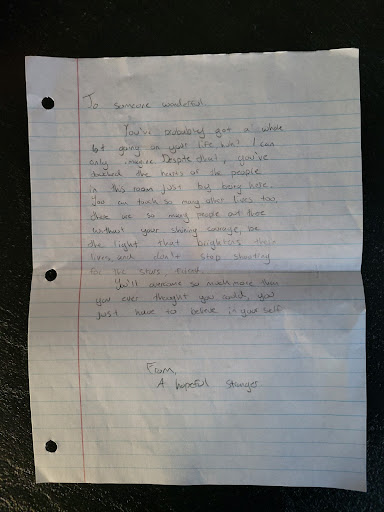 To someone wonderful,
You've probabley got a whole
lot going on your life, huh? I can
only imagine. Despite that, you've
touched the hearts of the people
in this room just by being here.
You can touch so many other lives too,
there are so many people out there
without your shining courage, be
the light that brightens their
lives, and don't stop shooting
for the stars, friend.
You'll overcome so much more than
you ever thought you could, you
just have to believe it yourself.
From,
A hopeful stranger